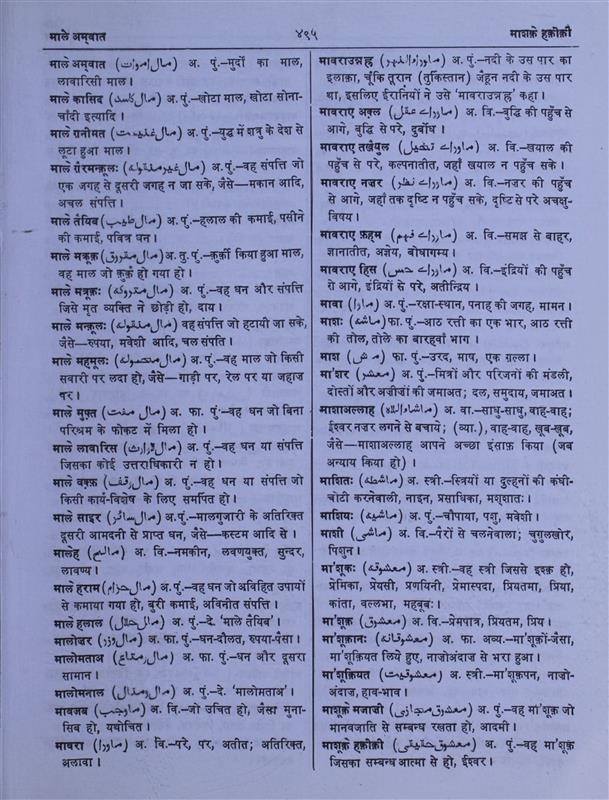 माले अम्वात
४९५
माशूक़े हक़ीक़ी
माले अम्वात (مال اموات) अ. पुं.–मुर्दों का माल,
लावारिसी माल।
माले कासिद (مال کاسد) अ. पुं.–खोटा माल, खोटा सोना-
चाँदी इत्यादि।
माले ग़नीमत (مال غنیمت) अ. पुं.–युद्ध में शत्रु के देश से
लूटा हुआ माल।
माले ग़ैरमन्क़ूलः (مال غیر منقولہ) अ. पुं.–वह संपत्ति जो
एक जगह से दूसरी जगह न जा सके, जैसे—मकान आदि,
अचल संपत्ति।
माले तैयिब (مال طیب) अ. पुं.–हलाल की कमाई, पसीने
की कमाई, पवित्र धन।
माले मक़्रूक़ (مال مقروق) अ. तु. पुं.–क़ुर्क़ी किया हुआ माल,
वह माल जो क़ुर्क़ हो गया हो।
माले मत्रूकः (مال متروکہ) अ. पुं.–वह धन और संपत्ति
जिसे मृत व्यक्ति ने छोड़ी हो, दाय।
माले मन्क़ूलः (مال منقولہ) वह संपत्ति जो हटायी जा सके,
जैसे—रुपया, मवेशी आदि, चल संपति।
माले महमूलः (مال محمولہ) अ. पुं.–वह माल जो किसी
सवारी पर लदा हो, जैसे—गाड़ी पर, रेल पर या जहाज
पर।
माले मुफ़्त (مال مفت) अ. फा. पुं.–वह धन जो बिना
परिश्रम के फोकट में मिला हो।
माले लावारिस (مال لاوارث) अ. पुं.–वह धन या संपत्ति
जिसका कोई उत्तराधिकारी न हो।
माले वक़्फ़ (مال وقف) अ. पुं.–वह धन या संपत्ति जो
किसी कार्य-विशेष के लिए समर्पित हो।
माले साइर (مال سائر) अ. पुं.–मालगुजारी के अतिरिक्त
दूसरी आमदनी से प्राप्त धन, जैसे—कस्टम आदि से।
मालेह (مالح) अ. वि.–नमकीन, लवणयुक्त, सुन्दर,
लावण्य।
माले हराम (مال حرام) अ. पुं.–वह धन जो अविहित उपायों
से कमाया गया हो, बुरी कमाई, अविनीत संपत्ति।
माले हलाल (مال حلال) अ. पुं.–दे. 'माले तैयिब'।
मालोज़र (مال وزر) अ. फा. पुं.–धन-दौलत, रुपया-पैसा।
मालोमताअ (مال ومتاع) अ. फा. पुं.–धन और दूसरा
सामान।
मालोमनाल (مال ومنال) अ. पुं.–दे. 'मालोमताअ'।
मावजब (ماوجب) अ. वि.–जो उचित हो, जैसा मुना-
सिब हो, यथोचित।
मावरा (ماورا) अ. वि.–परे, पर, अतीत; अतिरिक्त,
अलावा।
मावराउन्नह्र (ماوراء النہر) अ. पुं.–नदी के उस पार का
इलाक़ा, चूँकि तूरान (तुर्किस्तान) जेहून नदी के उस पार
था, इसलिए ईरानियों ने उसे 'मावराउन्नह्र' कहा।
मावराए अक़्ल (ماورائے عقل) अ. वि.–बुद्धि की पहुँच से
आगे, बुद्धि से परे, दुर्बोध।
मावराए तख़ैयुल (ماورائے تخیل) अ. वि.–ख़याल की
पहुँच से परे, कल्पनातीत, जहाँ ख़याल न पहुँच सके।
मावराए नज़र (ماورائے نظر) अ. वि.–नजर की पहुँच
से आगे, जहाँ तक दृष्टि न पहुँच सके, दृष्टि से परे अचक्षु-
विषय।
मावराए फ़ह्म (ماورائے فہم) अ. वि.–समझ से बाहर,
ज्ञानातीत, अज्ञेय, बोधागम्य।
मावराए हिस (ماورائے حس) अ. वि.–इंद्रियों की पहुँच
से आगे, इंद्रियों से परे, अतीन्द्रिय।
मावा (ماوا) अ. पुं.–रक्षा-स्थान, पनाह की जगह, मामन।
माशः (ماشہ) फा. पुं.–आठ रत्ती का एक भार, आठ रत्ती
की तोल, तोले का बारहवाँ भाग।
माश (ماش) फा. पुं.–उरद, माष, एक ग़ल्ला।
मा'शर (معشر) अ. पुं.–मित्रों और परिजनों की मंडली,
दोस्तों और अजीजों की जमाअत; दल, समुदाय, जमाअत।
माशाअल्लाह (ماشاء اللہ) अ. वा.–साधु-साधु, वाह-वाह;
ईश्वर नजर लगने से बचाये; (व्या.), वाह-वाह, खूब-खूब,
जैसे—माशाअल्लाह आपने अच्छा इंसाफ़ किया (जब
अन्याय किया हो)।
माशितः (ماشطہ) अ. स्त्री.–स्त्रियों या दुल्हनों की कंघी-
चोटी करनेवाली, नाइन, प्रसाधिका, मश्शातः।
माशियः (ماشیہ) अ. पुं.–चौपाया, पशु, मवेशी।
माशी (ماشی) अ. वि.–पैरों से चलनेवाला; चुग़ुलख़ोर,
पिशुन।
मा'शूक़ः (معشوقہ) अ. स्त्री.–वह स्त्री जिससे इश्क़ हो,
प्रेमिका, प्रेयसी, प्रणयिनी, प्रेमास्पदा, प्रियतमा, प्रिया,
कांता, वल्लभा, महबूबः।
मा'शूक़ (معشوق) अ. वि.–प्रेमपात्र, प्रियतम, प्रिय।
मा'शूक़ानः (معشوقانہ) अ. फा. अव्य.–मा'शूक़ों-जैसा,
मा'शूक़ियत लिये हुए, नाजोअंदाज से भरा हुआ।
मा'शूक़ियत (معشوقیت) अ. स्त्री.–मा'शूक़पन, नाजो-
अंदाज, हाव-भाव।
मा'शूक़े मजाज़ी (معشوق مجازی) अ. पुं.–वह मा'शूक़ जो
मानवजाति से सम्बन्ध रखता हो, आदमी।
माशूक़े हक़ीक़ी (معشوق حقیقی) अ. पुं.–वह मा'शूक़
जिसका सम्बन्ध आत्मा से हो, ईश्वर।